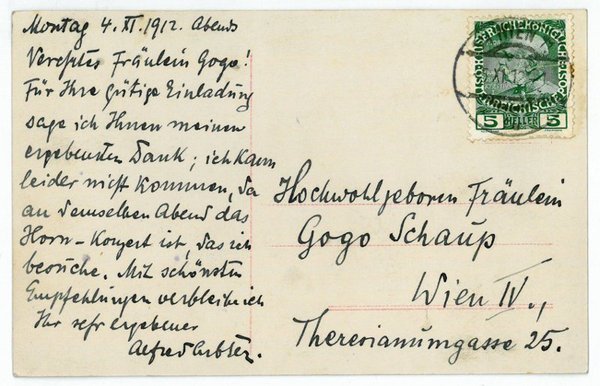 Montag 4. XI. 1912. Abends
Verehrtes Fräulein Gogo!
Für Ihre gütige Einladung
sage ich Ihnen meinen
ergebensten Dank; ich kann
leider nicht kommen, da
an demselben Abend das
Horn-Konzert ist, das ich
besuche. Mit schönsten
Empfehlungen verbleibe ich
Ihr sehr ergebener
Hochwohlgeboren Fräulein
Gogo Schaup
Wien IV.,
Theresianumgasse 25.
WIEN
5 HELLER 5